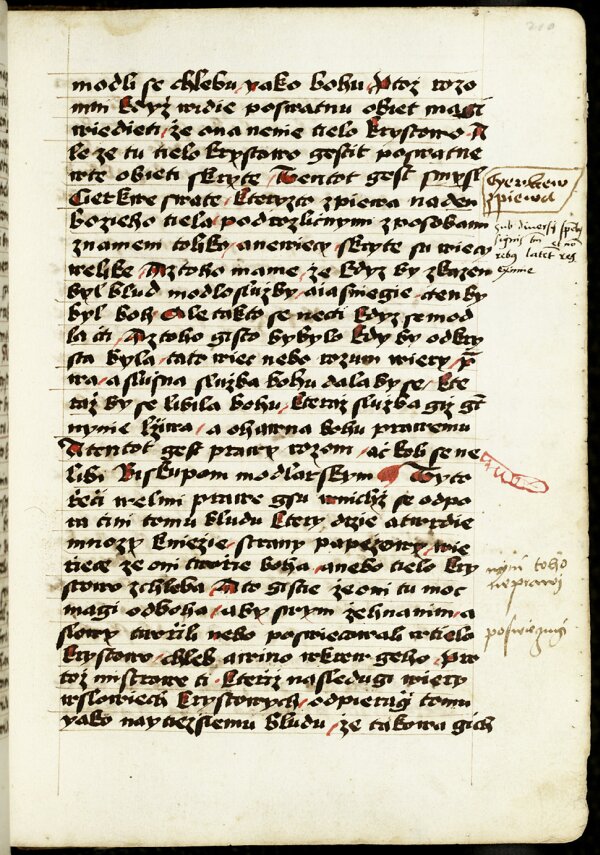 modli se chlebu yako bohu Protoz rozo
mni kdyz widie poswatnu obiet magi
wiedieti ze ona nenie tielo krystowo A
le ze tu tielo krystowo gestit poswatne
wte obieti skryte Tentot gest smysl
Cierkwe swate kteryzto zpiewa naden
bozieho tiela podrozlicnymi zposobami
znamem toliko anewiecy skryte su wiecy
welike Aztoho mame ze kdyz by zkazen
byl blud modlosluzby aiasniegie
byl boh Ale takto se neci kdyz se mod
la cti Aztoho gisto bybylo kdy by odkry
sta byla tato wiec nebo rozum wiery
wa aslusna sluzba bohu dala by se kte
raz by se libila bohu kteraz sluzba giz gt
nynie lziwa a ohawna bohu prawemu
Atentot gest prawy rozom ac kob se ne
libi Biskupom modlarskym Tyto
reci welmi prawe gsu wnichz se odpo
ra cini tomu bludu ktery drzie atwrdie
mnozy kniezie strany papezowy wie
riece ze oni tworie boha anebo tielo kry
stowo zchleba Ato gistie ze oni tu moc
magi odboha aby swym zehnanim a
slowy tworili nebo poswiecowali wtielo
krystowo chleb awino wkrew geho Pro
toz mistrowe ti kteriz nasledugi wiery
wslowiech krystowych odpieragi tomu
yako naytiezsiemu bludu ze takowa gich
Cyerkew
zpiewa
sub diversis
signis tm et no
rebus latet res
eximie
toho
neprawi
210